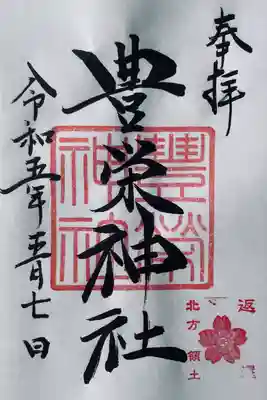 奉拝
豊栄神社
令和五年五月七日
豊榮神社
返
北方領土